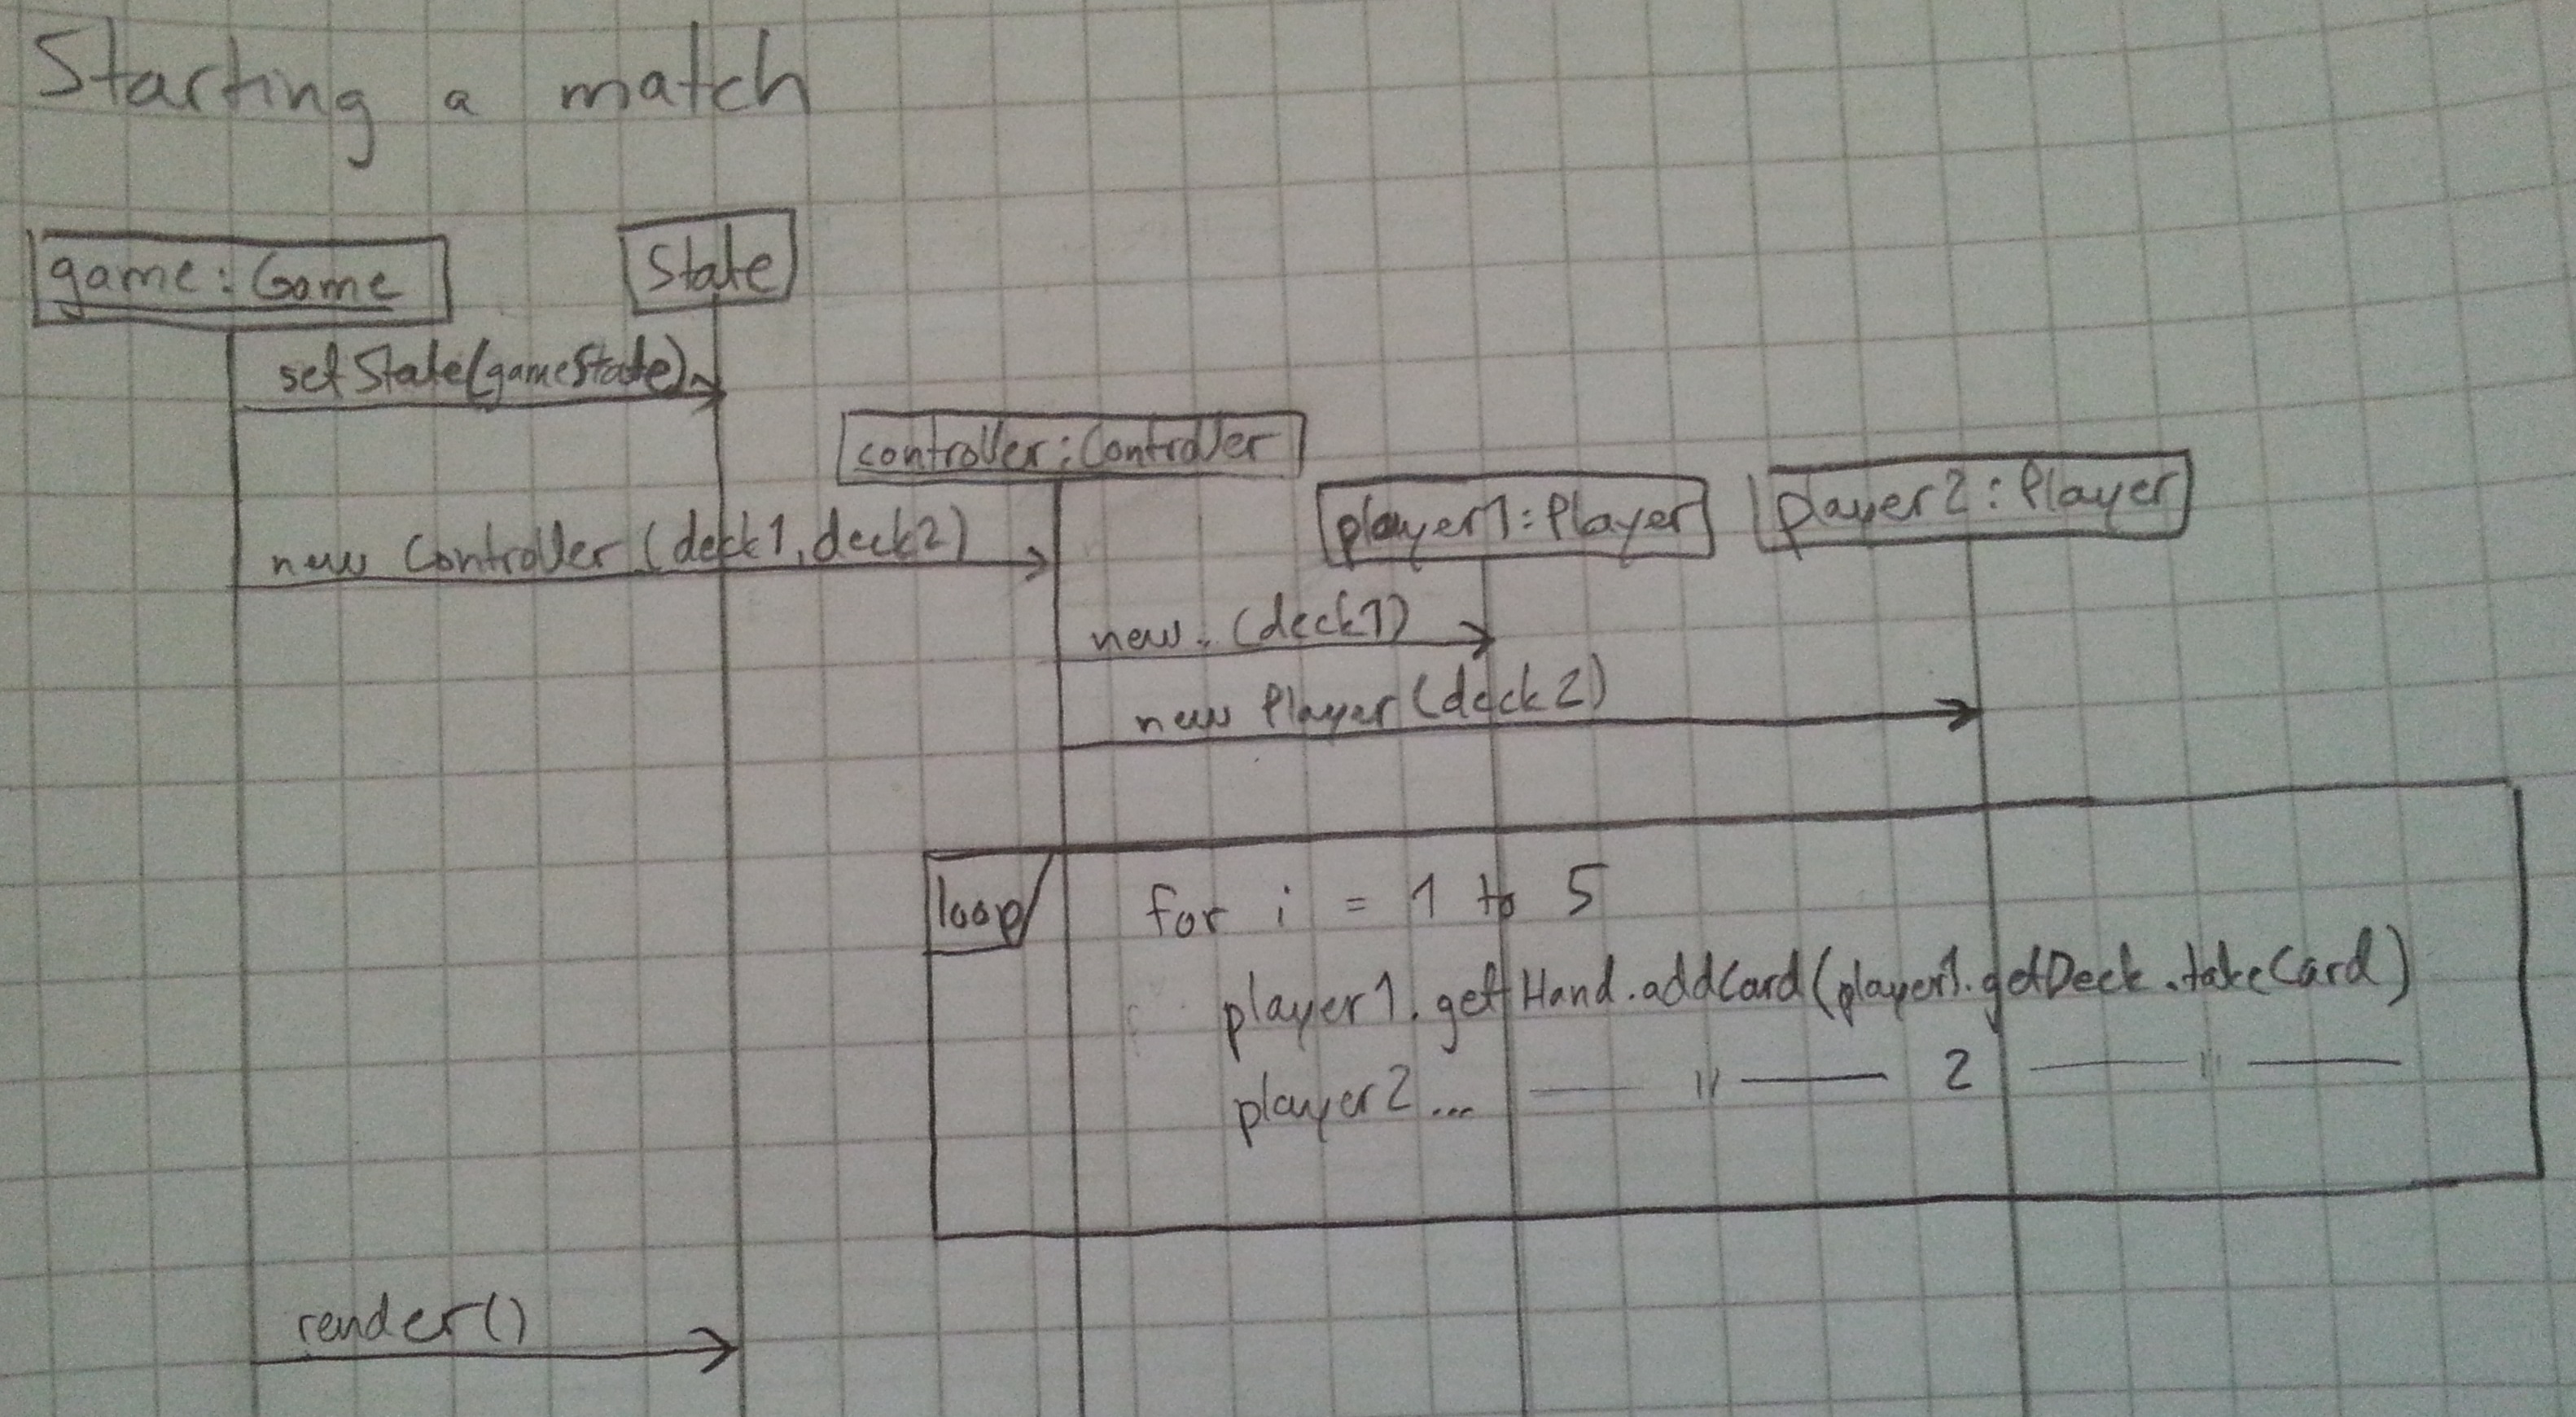 Starting a match
game:Game
State
setState(gameState)
controller:Controller
player1:Player
player2:Player
new Controller(deck1, deck2)
new (deck1)
new Player(deck2)
loop
for i = 1 to 5
player1.getHand.addCard(player1.getDeck.takeCard)
player2... — " — 2 — " —
render()